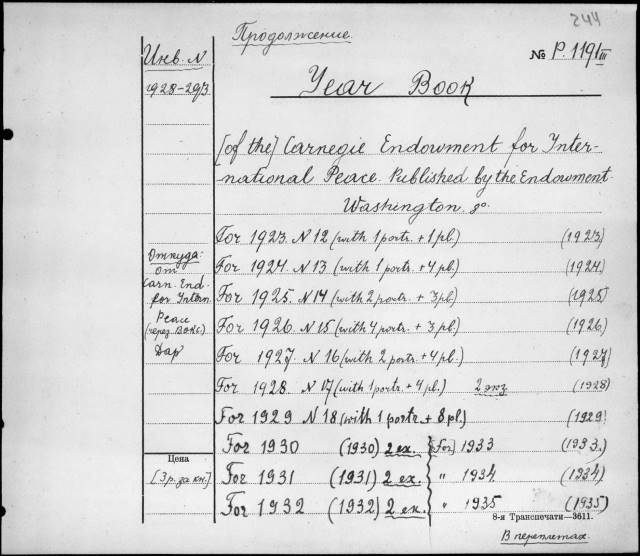 244
Продолжение.
Инв. N
1928-29/3
№ P. 119/III
Year Book
[of the] Carnegie Endowment for Inter-
national Peace. Published by the Endowment.
Washington. 8º.
For 1923. N 12 (with 1 portr. + 1 pl.) (1923)
For 1924. N 13 (with 1 portr. + 4 pl.) (1924.
For 1925. N 14 (with 2 portr. + 3 pl.) (1925
For 1926. N 15 (with 4 portr. + 3 pl.) (1926)
For 1927. N 16 (with 2 portr. + 4 pl.) (1927
For 1928. N 17 (with 1 portr. + 4 pl.) 2 экз (1928)
For 1929 N 18 (with 1 portr. + 8 pl.) (1929)
For 1930 (1930) 2 ex. [For] 1933 (1933.)
For 1931 (1931) 2 ex. " 1934. (1934)
For 1932 (1932) 2 ex. " 1935 (1935)
Откуда:
от
Carn. End.
for Intern.
Peace
(через ВОКС)
Дар
Цена
[3 р. за кн.]
8-я Транспечати—3611.
В переплетах.